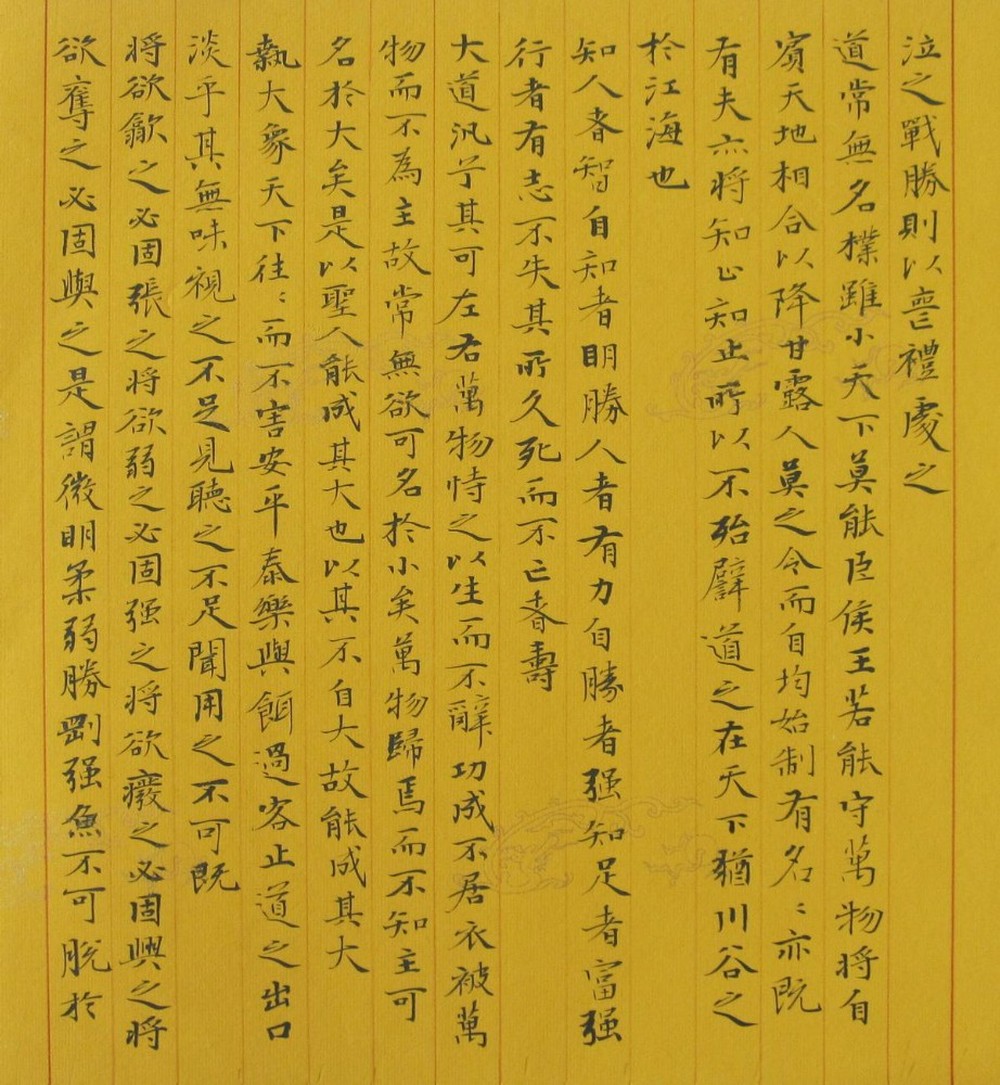 泣之戰勝則以喪禮處之
道常無名樸雖小天下莫能臣侯王若能守萬物將自
賓天地相合以降甘露人莫之令而自均始制有名〻亦既
有夫亦將知止知止所以不殆譬道之在天下猶川谷之
於江海也
知人者智自知者明勝人者有力自勝者强知足者富强
行者有志不失其所久死而不亡者壽
大道汎兮其可左右萬物恃之以生而不辭功成不居衣被萬
物而不為主故常無欲可名於小矣萬物歸焉而不知主可
名於大矣是以聖人能成其大也以其不自大故能成其大
執大象天下往〻而不害安平泰樂與餌過客止道之出口
淡乎其無味視之不足見聽之不足聞用之不可既
將欲歙之必固張之將欲弱之必固强之將欲廢之必固興之將
欲奪之必固與之是謂微明柔弱勝剛强魚不可脫於